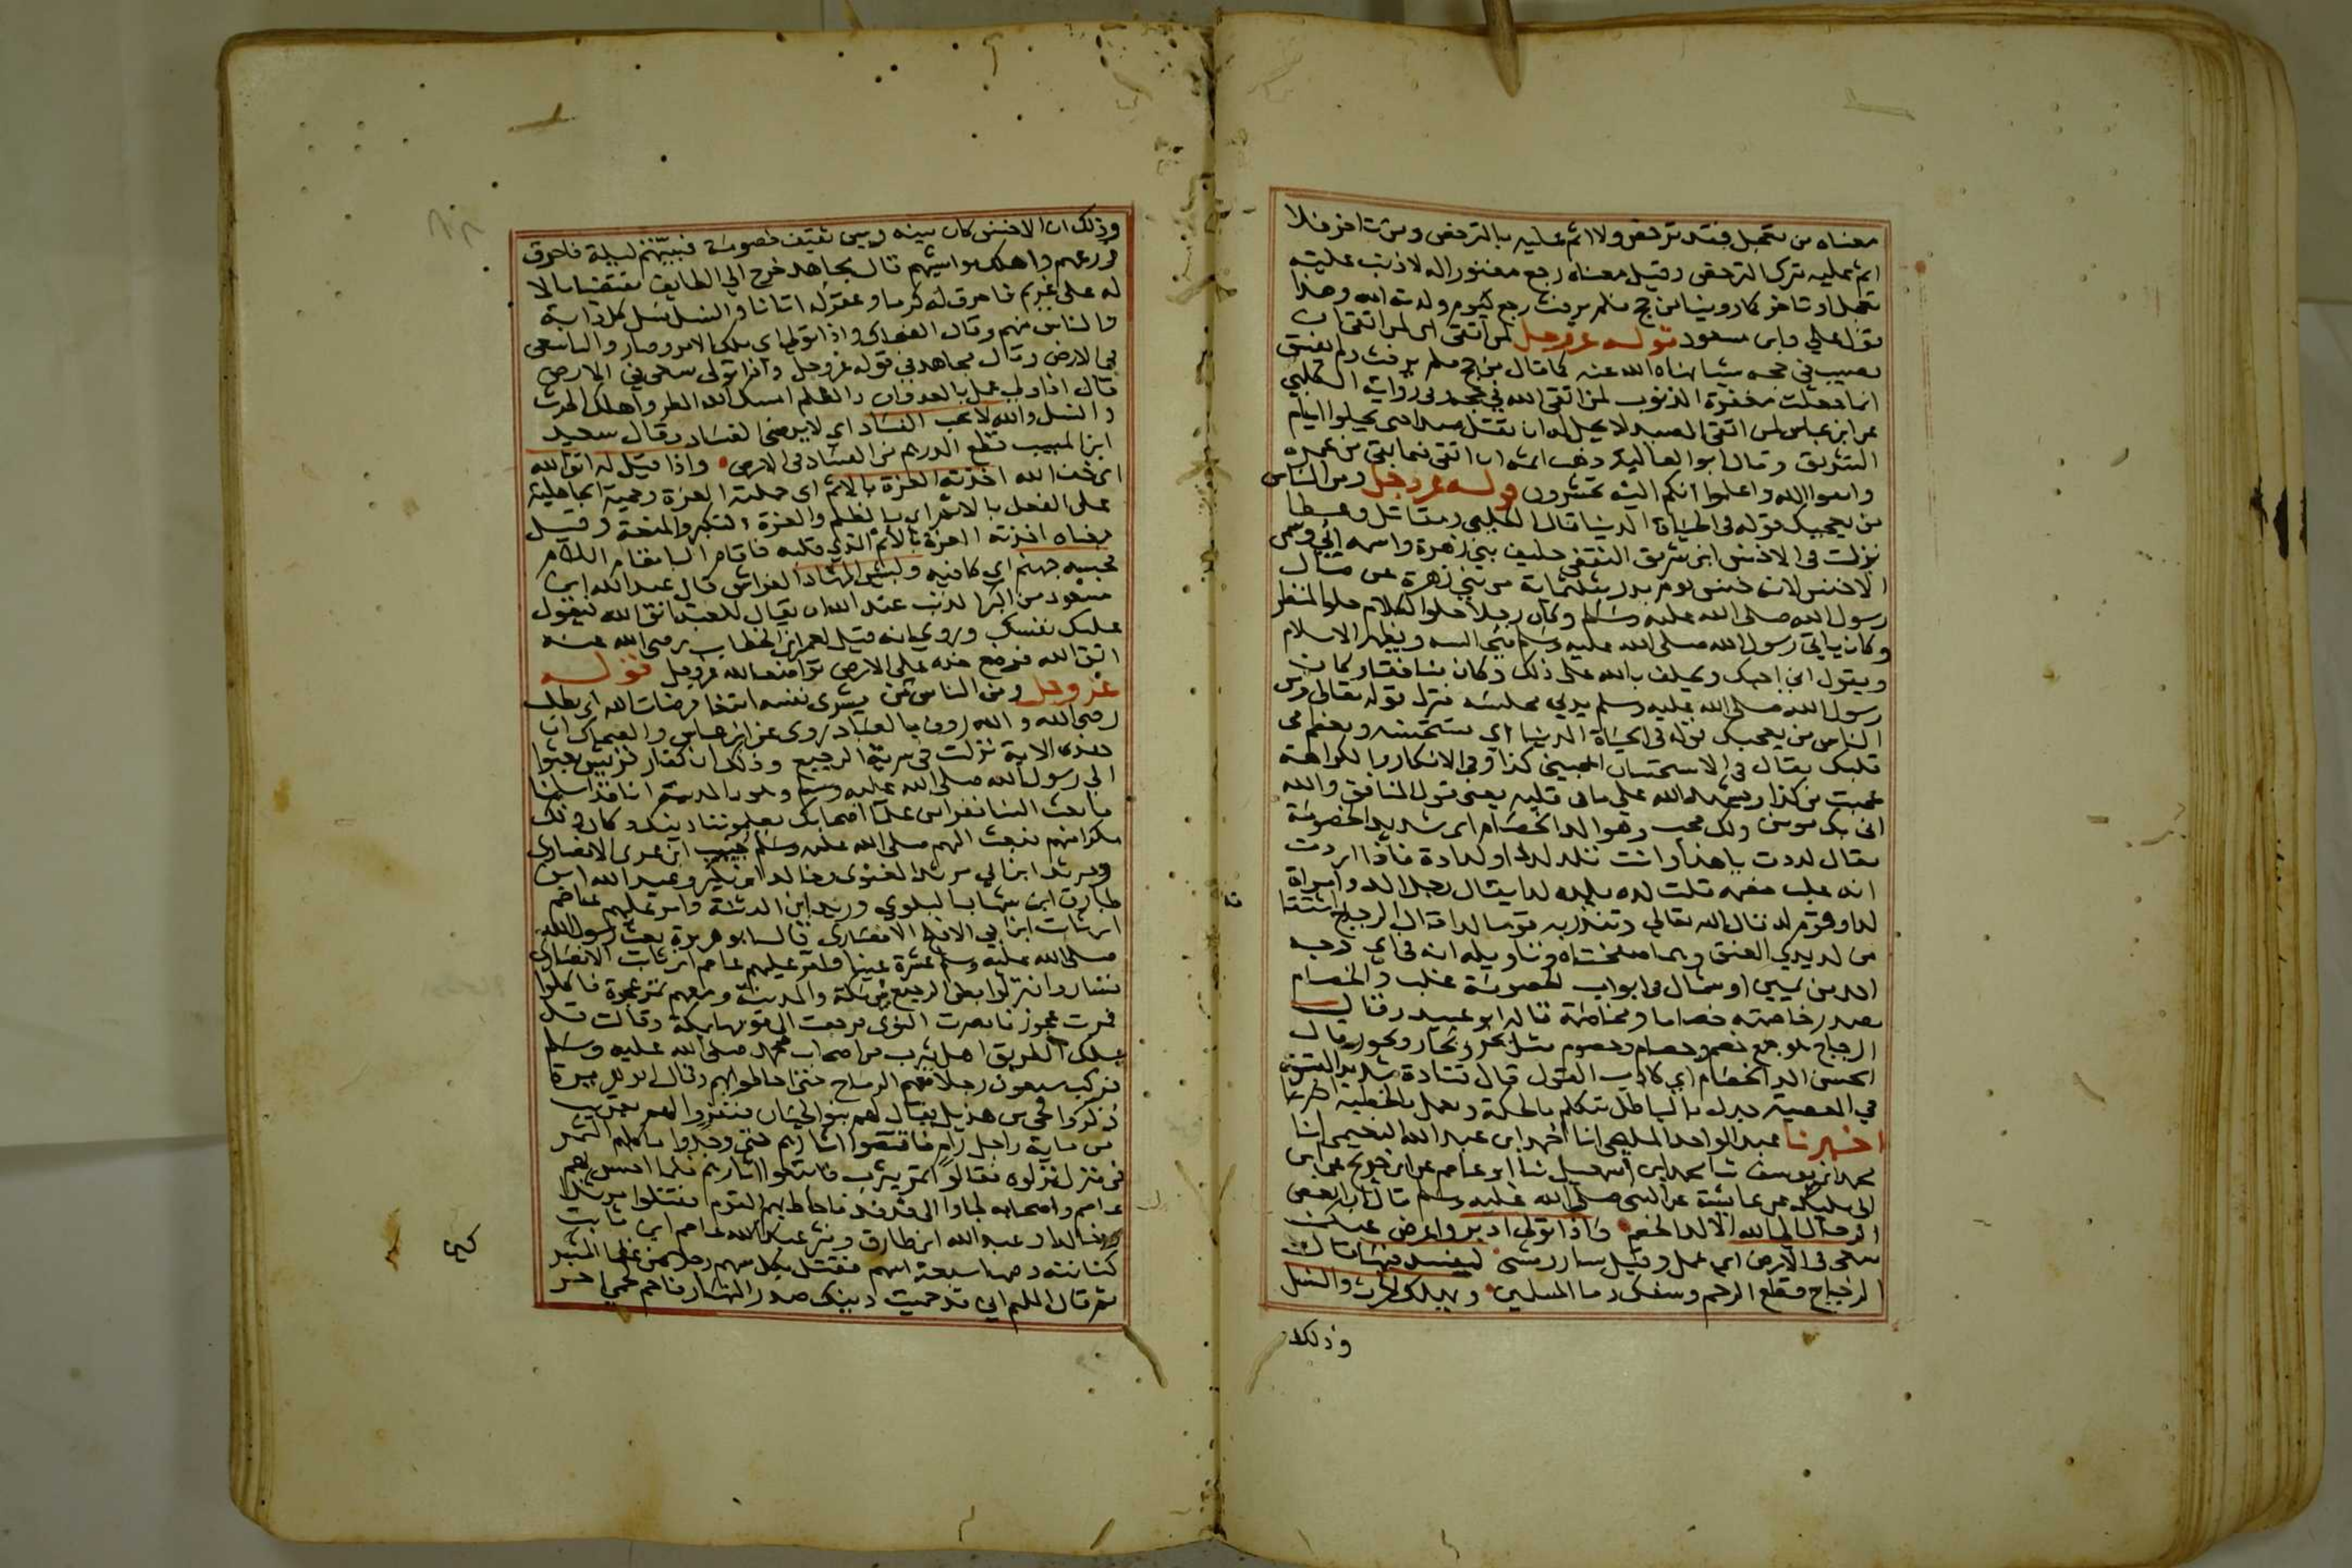 معناه من تعجل فقد ترخص ولا اثم عليه بالترخص ومن تاخر فلا
اثم عليه بترك الترخص وقيل معناه رجع مغفورا له لا ذنب عليه
تعجل او تاخر كما روينا من حج فلم يرفث رجع كيوم ولدته امه وهذا
قول علي وابن مسعود قوله عز وجل لمن اتقى اي لمن اتقى ان
يصيب في حجه شيا نهاه الله عنه كما قال من حج فلم يرفث ولم يفسق
انما جعلت مغفرة الذنوب لمن اتقى الله في حجه في رواية الكلبي
عن ابن عباس لمن اتقى الصيد لا يحل له ان يقتل صيدا حتى يخلوا ايام
التشريق وقال ابو العالية ذهب اثمه ان اتقى فيما بقي من عمره
واتقوا الله واعلموا انكم اليه تحشرون قوله عز وجل ومن الناس
من يعجبك قوله في الحياة الدنيا قال الكلبي ومقاتل وعطا
نزلت في الاخنس ابن شريق الثقفي حليف بني زهرة واسمه ابي وسمي
الاخنس لانه خنس يوم بدر بثلثماية من بني زهرة عن قتال
رسول الله صلى الله عليه وسلم وكان رجلا حلو الكلام حلو المنظر
وكان ياتي رسول الله صلى الله عليه وسلم فيجالسه ويظهر الاسلام
ويقول اني احبك ويحلف بالله على ذلك وكان منافقا وكان
رسول الله صلى الله عليه وسلم يدني مجلسه فنزل قوله تعالى ومن
الناس من يعجبك قوله في الحياة الدنيا اي تستحسنه ويعظم في
قلبك يقال في الاستحسان اعجبني كذا وفي الانكار والكراهة
عجبت من كذا ويشهد الله على ما في قلبه يعني قول المنافق والله
اني بك مومن ولك محب وهو الد الخصام اي شديد الخصومة
يقال لددت يا هذا وانت تلد لددا ولدادة فاذا اردت
انه غلب خصمه قلت لده يلده لدا يقال رجل الد وامراة
لدا وقوم لد قال الله تعالى وتنذر به قوما لدا قال الزجاج اشتقاقه
من لديدي العنق وهما صفحتاه وتاويله انه في اي وجه
اخذ من يمين او شمال في ابواب الخصومة غلب والخصام
مصدر خاصمته خصاما ومخاصمة قاله ابو عبيد وقال
الزجاج هو جمع خصم وخصام وخصوم مثل بحر وبحار وبحور وقال
الحسن الد الخصام اي كاذب القول قال قتادة شديد القسوة
في المعصية جدل بالباطل يتكلم بالحكمة ويعمل بالخطية
اخبرنا عبد الواحد المليحي انا احمد ابن عبد الله النعيمي انا
محمد ابن يوسف ثنا محمد ابن اسمعيل ثنا ابو عاصم عن ابن جريج عن ابن
ابي مليكة عن عايشة عن النبي صلى الله عليه وسلم قال ان ابغض
الرجال الى الله الالد الخصم واذا تولى ادبر واعرض عنك
سعى في الارض اي عمل وقيل سار ومشى ليفسد فيها قال
الزجاج وقطع الرحم وسفك دما المسلمين ويهلك الحرث والنسل
وذلك
وذلك ان الاخنس كان بينه وبين ثقيف خصومة فبيتهم ليلة فاحرق
زرعهم واهلك مواشيهم قال مجاهد خرج الى الطايف مقتضيا مالا
له على غريم فاحرق له كرما وعقر له اتانا والنسل نسل كل دابة
والناس منهم وقال الضحاك واذا تولى اي ملك الامر وصار واليا سعى
في الارض وقال مجاهد في قوله عز وجل واذا تولى سعى في الارض
قال اذا ولي عمل بالعدوان والظلم امسك الله المطر واهلك الحرث
والنسل والله لا يحب الفساد اي لا يرضى الفساد وقال سعيد
ابن المسيب قطع الدرهم من الفساد في الارض واذا قيل له اتق الله
اي خف الله اخذته العزة بالاثم اي حملته العزة وحمية الجاهلية
على الفعل بالاثم اي بالظلم والعزة التكبر والمنعة وقيل
معناه اخذته العزة بالاثم الذي في قلبه فاقام البا مقام اللام
فحسبه جهنم اي كافيه ولبيس المهاد الفراش قال عبد الله ابن
مسعود من اكبر الذنب عند الله ان يقال للعبد اتق الله فيقول
عليك نفسك وروي انه قيل لعمر ابن الخطاب رضي الله عنه
اتق الله فوضع خده على الارض تواضعا لله عز وجل قوله
عز وجل ومن الناس من يشري نفسه ابتغا مرضات الله اي يطلب
رضى الله والله روف بالعباد روي عن ابن عباس والضحاك ان
هذه الاية نزلت في سرية الرجيع وذلك ان كفار قريش بعثوا
الى رسول الله صلى الله عليه وسلم وهو بالمدينة انا قد اسلمنا
فابعث الينا نفرا من علما اصحابك يعلموننا دينك وكان ذلك
مكرا منهم فبعث اليهم صلى الله عليه وسلم خبيب ابن عدي الانصاري
ومرثد ابن ابي مرثد الغنوي وخالد ابن بكير وعبد الله ابن
طارق ابن شهاب البلوي وزيد ابن الدثنة وامر عليهم عاصم
ابن ثابت ابن ابي الاقلح الانصاري قال ابو هريرة بعث رسول الله
صلى الله عليه وسلم عشرة عينا وامر عليهم عاصم ابن ثابت الانصاري
فساروا فنزلوا بطن الرجيع بين مكة والمدينة ومعهم تمر عجوة فاكلوا
فمرت عجوز فابصرت النوى فرجعت الى قومها بمكة وقالت قد
سلك الطريق اهل يثرب من اصحاب محمد صلى الله عليه وسلم
فركب سبعون رجلا معهم الرماح حتى احاطوا بهم وقال ابو هريرة
ذكروا لحي من هذيل يقال لهم بنو لحيان فنفروا لهم بقريب
من ماية راجل رام فاقتصوا اثارهم حتى وجدوا ماكلهم التمر
في منزل نزلوه فقالوا تمر يثرب فاتبعوا اثارهم فلما احس بهم
عاصم واصحابه لجاوا الى فدفد فاحاط بهم القوم فقتلوا مرثدا
وخالدا وعبد الله ابن طارق ونثر عاصم ابن ثابت
كنانته وفيها سبعة اسهم فقتل بكل سهم رجلا من عظما المشركين
ثم قال اللهم اني قد حميت دينك صدر النهار فاحم لحمي اخر